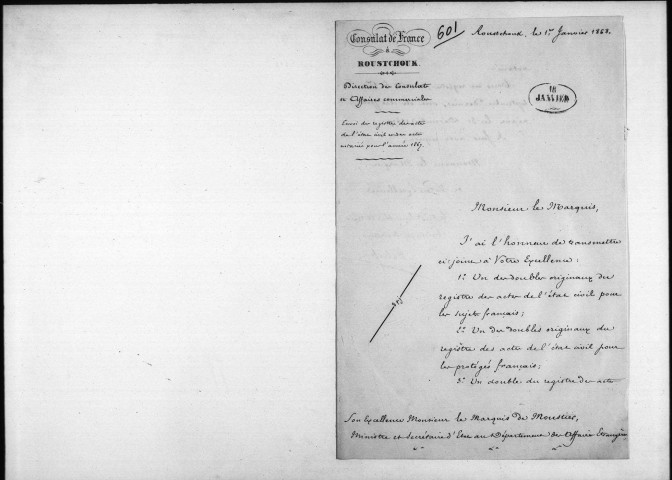 Consulat de France
à
ROUSTCHOUK.
601
Roustchouk, le 1er Janvier 1868.
Direction des Consulats
et Affaires commerciales
18
JANVIER
Envoi des registres des actes
de l'état civil et des actes
notariés pour l'année 1867.
Monsieur le Marquis,
J'ai l'honneur de transmettre
ci-joint à Votre Excellence:
1º. Un des doubles originaux du
registre des actes de l'état civil pour
les sujets français;
2º. Un des doubles originaux du
registre des actes de l'état civil pour
les protégés français;
3º. Un double du registre des actes
Son Excellence Monsieur le Marquis de Moustier,
Ministre et Secrétaire d'Etat au Département des Affaires Etrangères